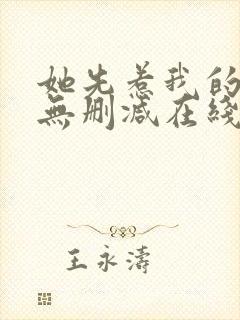 她先惹我的
無删减在綫
王永濤